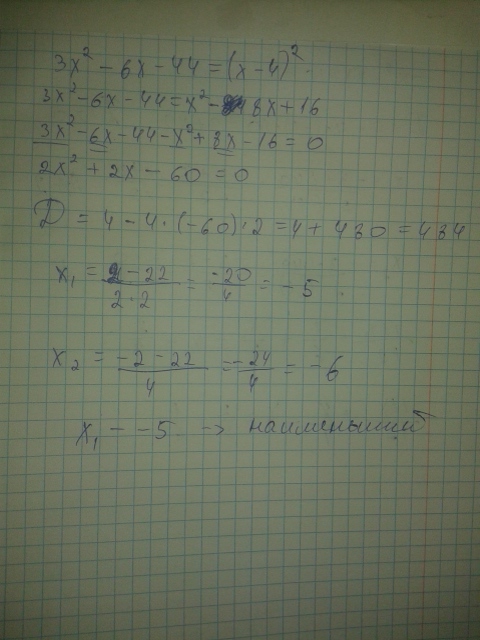 3x² - 6x - 44 = (x - 4)²
3x² - 6x - 44 = x² - 8x + 16
3x² - 6x - 44 - x² + 8x - 16 = 0
2x² + 2x - 60 = 0
D = 4 - 4 · (-60) · 2 = 4 + 480 = 484
x₁ = 2 - 22 / 2 · 2 = -20 / 4 = -5
x₂ = -2 - 22 / 4 = -24 / 4 = -6
x₁ - -5 -> наименьший